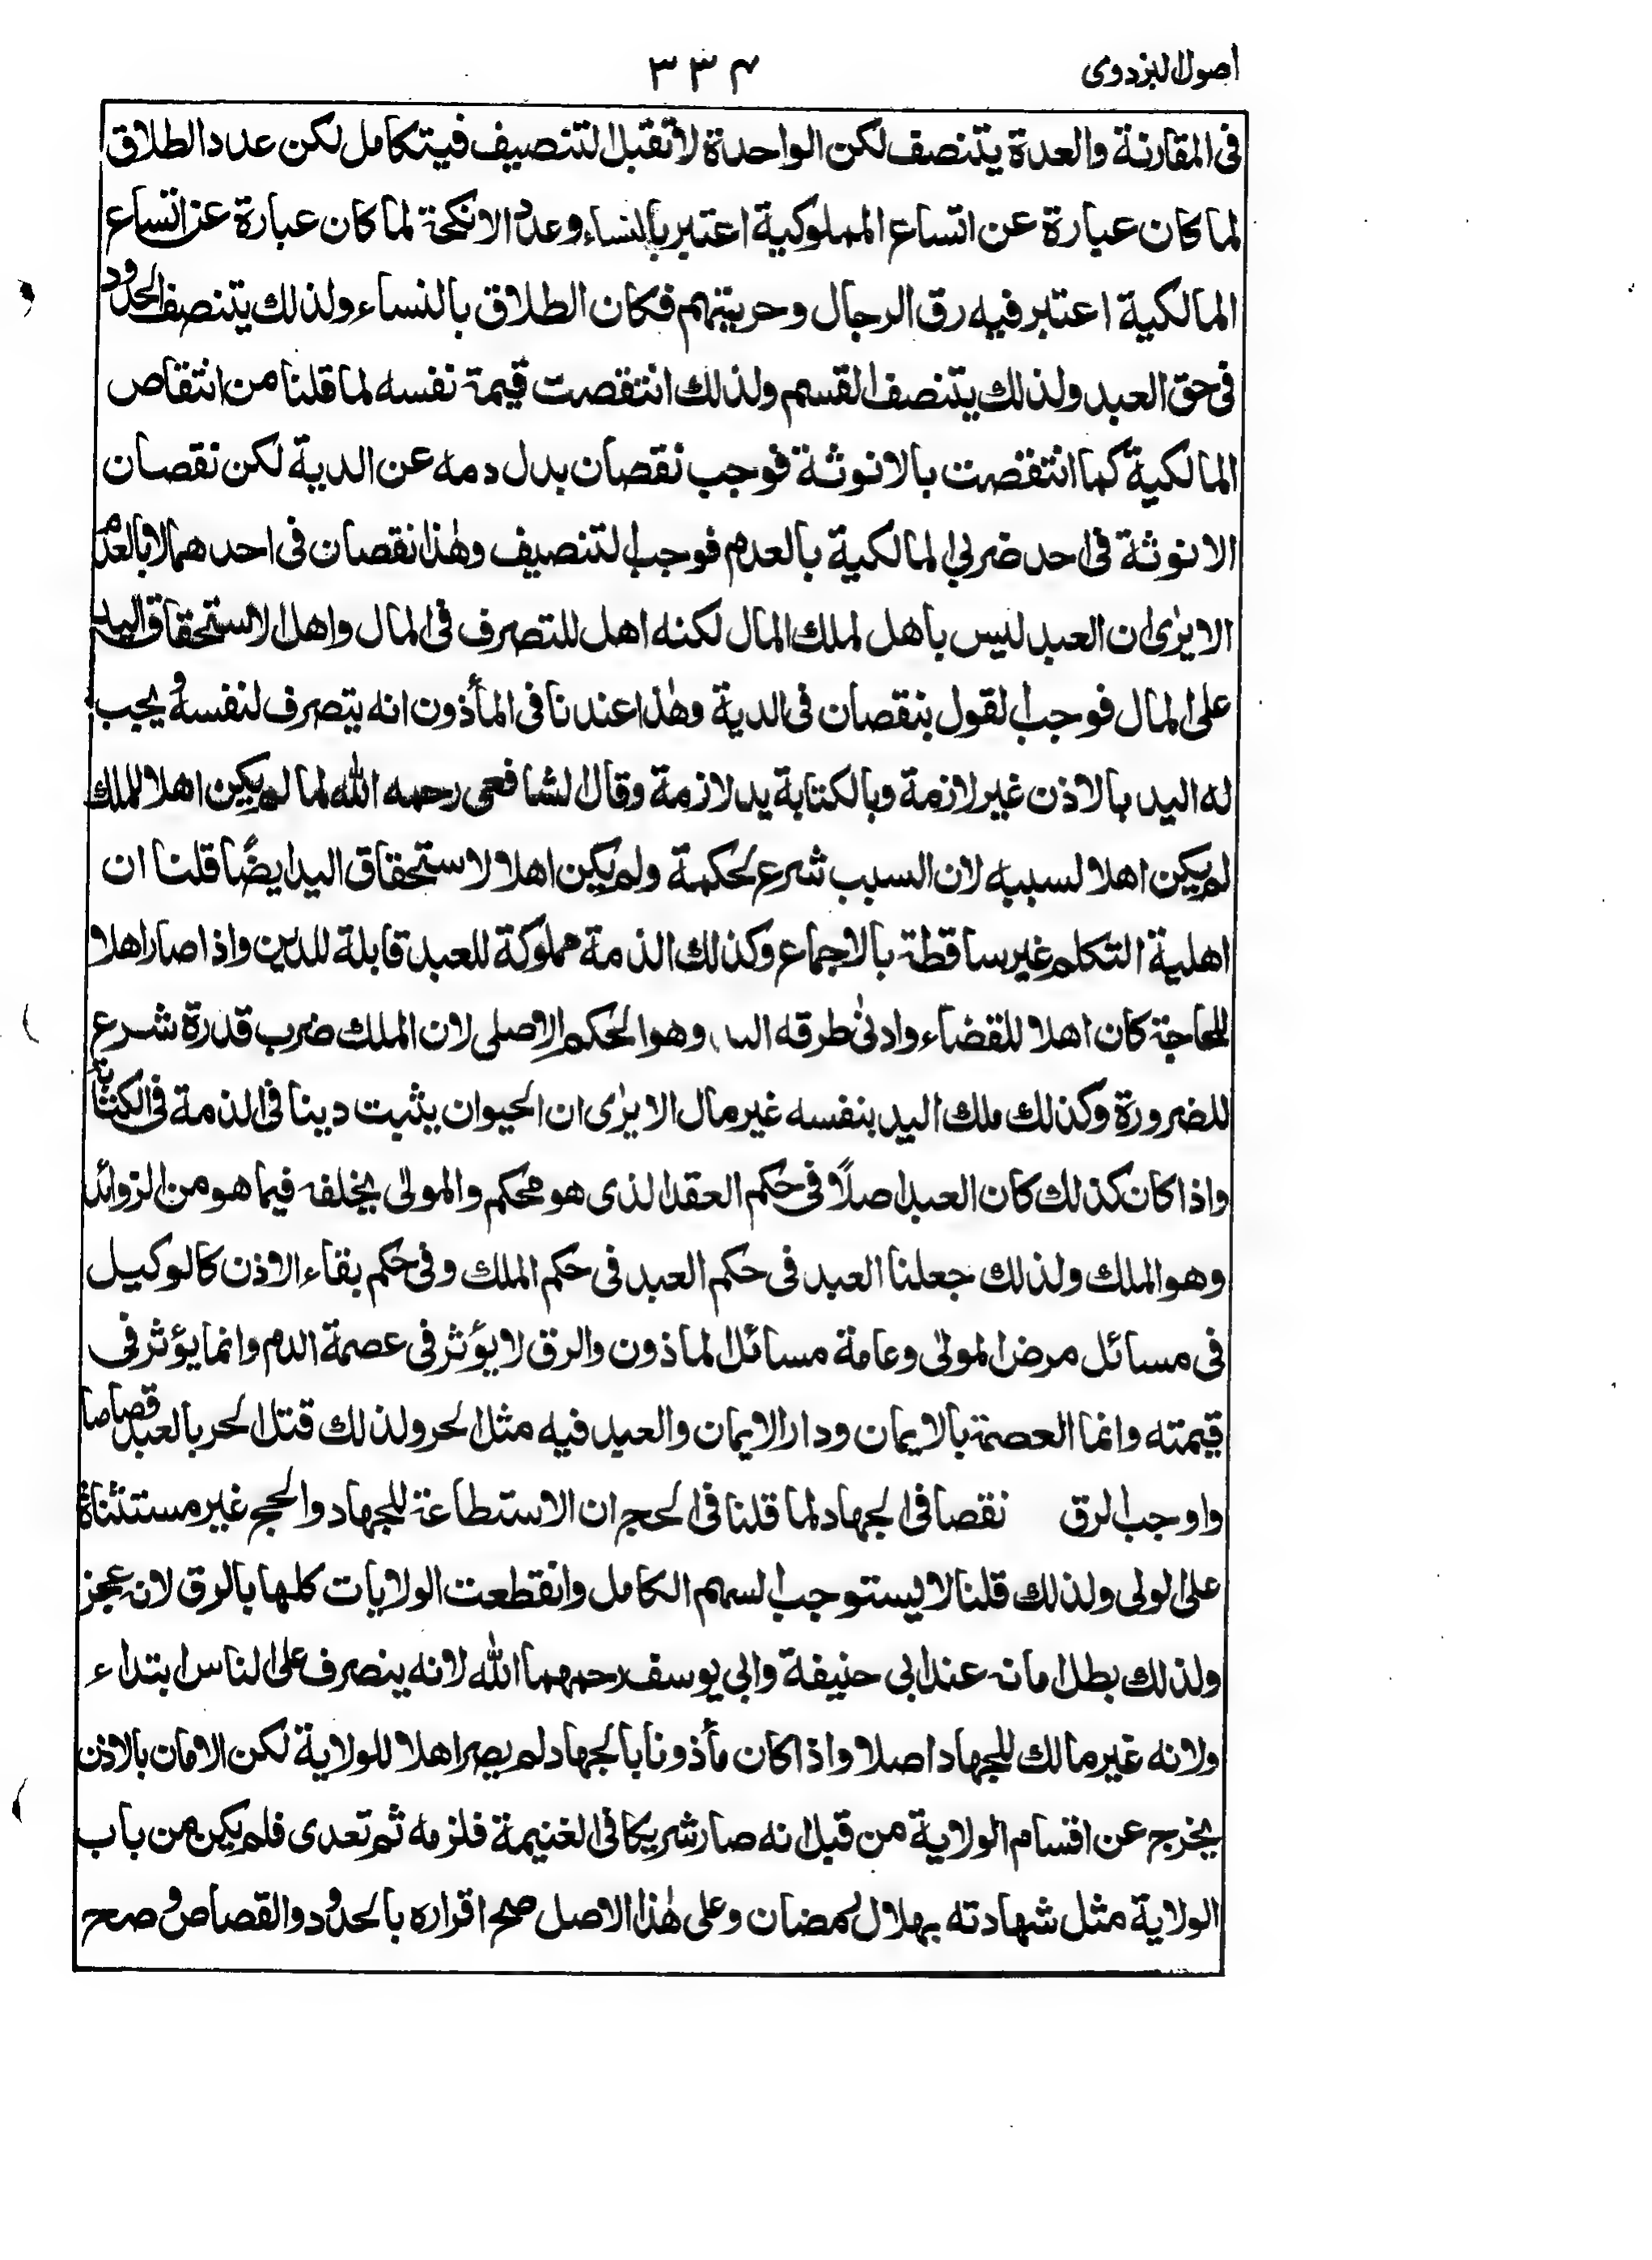 اصول البزدوی
۳۳۴
فی المقارنة والعدة يتنصف لکن الواحدة لاتقبل التنصيف فيتکامل لکن عدد الطلاق
لما کان عبارة عن اتساع المملوکية اعتبر بالنساء وعدد الانکحة لما کان عبارة عن اتساع
المالکية اعتبر فيه رق الرجال وحريتهم فکان الطلاق بالنساء ولذلك يتنصف الحدود
فی حق العبد ولذلك يتنصف القسم ولذلك انتقصت قيمة نفسه لما قلنا من انتقاص
المالکية کما انتقصت بالانوثة فوجب نقصان بدل دمه عن الدية لکن نقصان
الانوثة فی احد ضربی المالکية بالعدم فوجب التنصيف وهٰذا نقصان فی احدهما لا بالعدم
الا يرٰی ان العبد ليس باهل لملك المال لکنه اهل للتصرف فی المال واهل لاستحقاق اليد
علی المال فوجب القول بنقصان فی الدية وهٰذا عندنا فی المأذون انه يتصرف لنفسه ويجب
له اليد بالاذن غير لازمة وبالکتابة يد لازمة وقال الشافعی رحمه الله لما لم يکن اهلا للملك
لم يکن اهلا لسببه لان السبب شرع لحکمة ولم يکن اهلا لاستحقاق اليد ايضًا قلنا ان
اهلية التکلم غير ساقطة بالاجماع وکذلك الذمة مملوکة للعبد قابلة للدين واذا صار اهلا
للحاجة کان اهلا للقضاء وادنٰی طرقه اليد وهو الحکم الاصلی لان الملك ضرب قدرة شرع
للضرورة وکذلك ملك اليد بنفسه غير مال الا يرٰی ان الحيوان يثبت دينا فی الذمة فی الکتابة
واذا کان کذلك کان العبد اصلًا فی حکم العقد الذی هو محکم والمولی يخلفه فيما هو من الزوائد
وهو الملك ولذلك جعلنا العبد فی حکم العبد فی حکم الملك وفی حکم بقاء الاذن کالوکيل
فی مسائل مرض المولٰی وعامة مسائل الماذون والرق لا يؤثر فی عصمة الدم وانما يؤثر فی
قيمته وانما العصمة بالايمان ودار الايمان والعبد فيه مثل الحر ولذلك قتل الحر بالعبد قصاصا
واوجب الرق نقصا فی الجهاد لما قلنا فی الحج ان الاستطاعة للجهاد والحج غير مستثناة
علی المولی ولذلك قلنا لا يستوجب السهم الکامل وانقطعت الولايات کلها بالرق لانه عجز
ولذلك بطل امانه عند ابی حنيفة وابی يوسف رحمهما الله لانه ينصرف علی الناس ابتداء
ولانه غير مالك للجهاد اصلا واذا کان مأذونا بالجهاد لم يصر اهلا للولاية لکن الامان بالاذن
يخرج عن اقسام الولاية من قبل انه صار شريکا فی الغنيمة فلزمه ثم تعدی فلم يکن من باب
الولاية مثل شهادته بهلال رمضان وعلی هٰذا الاصل صح اقراره بالحدود والقصاص وصح